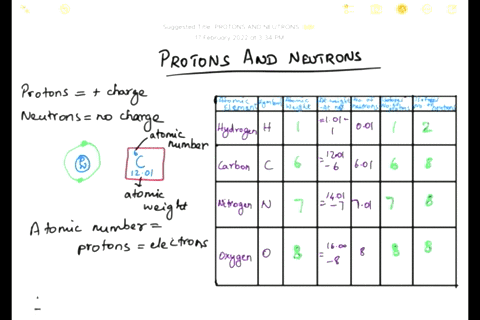 Suggested Title: PROTONS AND NEUTRONS
17 February 2022 at 3:34 PM
PROTONS AND NEUTRONS
Protons = + charge
Neutrons = no charge
atomic number
6
C
12.01
atomic weight
Atomic number =
protons = electrons
Element Symbol
Hydrogen H 1 =1.01- 1 0.01 1 2
Carbon C 6 =12.01 -6 6.01 6 8
Nitrogen N 7 =14.01 -7 7.01 7 8
Oxygen O 8 =16.00 -8 8 8 8